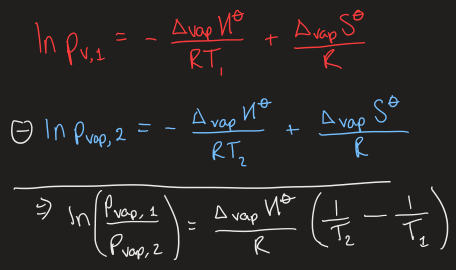 ln p_{v,1} = - \frac{Δ_{vap} H^⦵}{RT_1} + \frac{Δ_{vap} S^⦵}{R}
⊖ ln p_{vap,2} = - \frac{Δ_{vap} H^⦵}{RT_2} + \frac{Δ_{vap} S^⦵}{R}
⇒ ln(\frac{p_{vap,1}}{p_{vap,2}}) = \frac{Δ_{vap} H^⦵}{R} (\frac{1}{T_2} - \frac{1}{T_1})